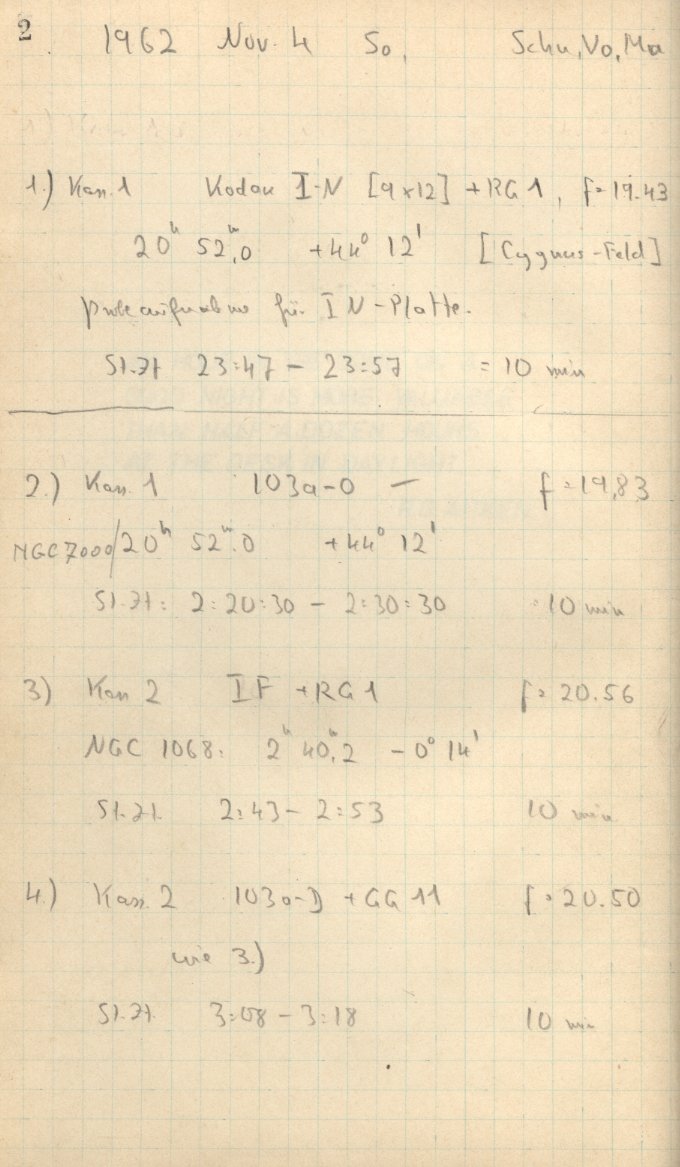 2 1962 Nov. 4 So, Schu, Vo, Ma
1.) Kass. 1 Kodak I-N [9x12] + RG 1, f=19.43
20h 52m,0 +44° 12' [Cygnus-Feld]
Probeaufnahme für IN-Platte.
St.Zt 23:47 - 23:57 = 10 min
2.) Kass. 1 103a-O — f=19,83
NGC 7000/20h 52m.0 +44° 12'
St.Zt: 2:20:30 - 2:30:30 = 10 min
3) Kass 2 IF + RG 1 f= 20.56
NGC 1068: 2h 40m,2 - 0° 14'
St.Zt. 2:43 - 2:53 10 min
4.) Kass. 2 103a-D + GG 11 f=20.50
wie 3.)
St.Zt. 3:08 - 3:18 10 min